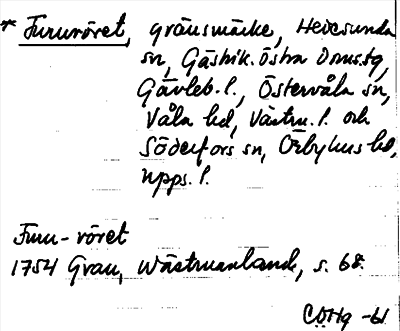 * Fururöret, gränsmärke, Hedesunda
sn, Gästrik. östra domsg,
Gävleb. l., Östervåla sn,
Våla hd, Västm. l. och
Söderfors sn, Örbyhus hd,
Upps. l.
Furu-röret
1754 Grau, Wästmanland, s. 68.
COHg -61